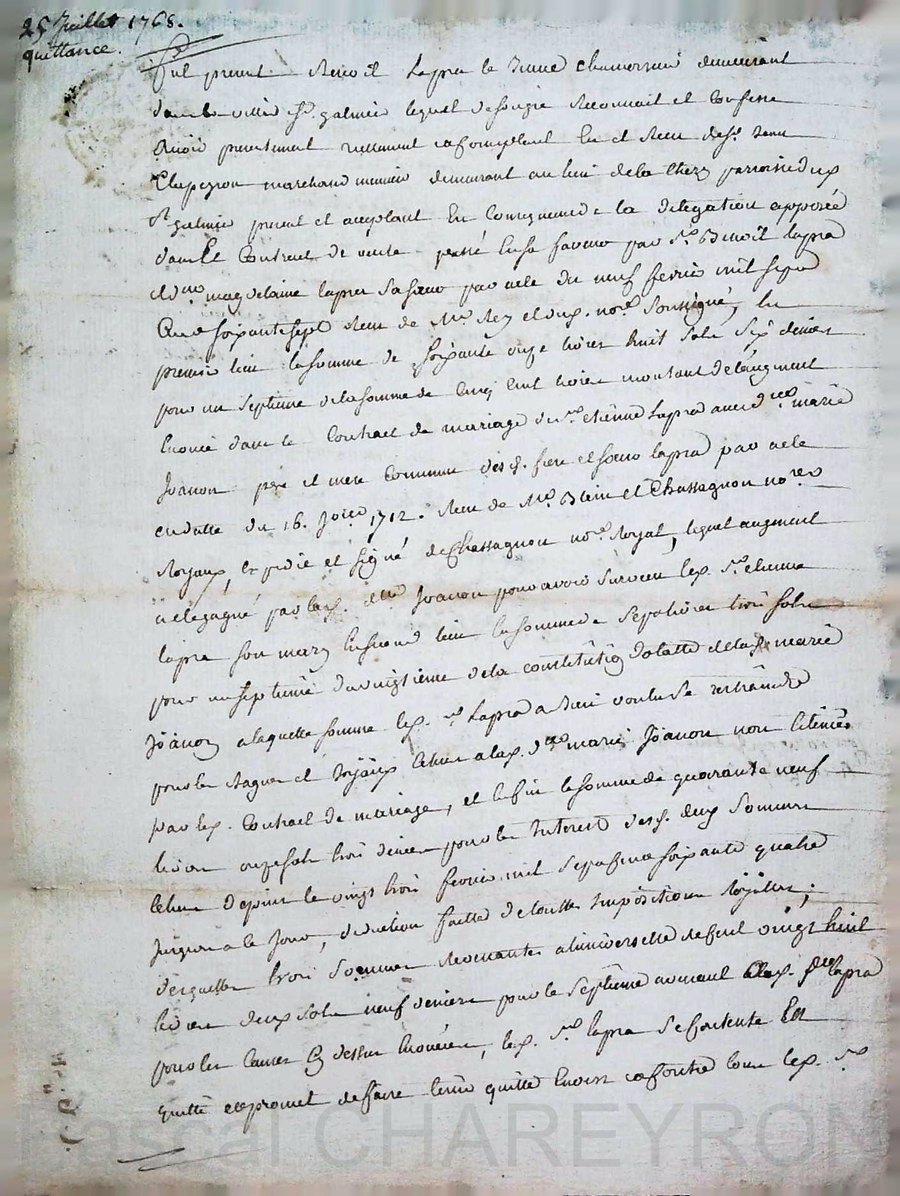 25 Juillet 1768.
quittance.
fut present Benoit Lapra le Jeune chamoiseur demeurant
dans la ville St. galmier lequel de son gré reconnait et confesse
avoir presentement reellement et comptant eu et receu de Sr. Jean
Chapeyron marchand demeurant au lieu de la parroisse dud.
St galmier present et acceptant en consequence de la delegation apposée
dans le Contract de vente passé en sa faveur par Sr. Benoit Lapra
et dlle. magdelaine lapra sa soeur par acte du neuf fevrier mil sept
Cent soixante sept receu de Me. Rey et dud. nore. soussigné, en
premier lieu la somme de soixante onze livres huit sols six deniers
pour un septieme de la somme de cinq cent livres montant de l'augment
Enoncé dans le Contract de mariage du Sr. etienne Lapra avec dlle. marie
Joanon pere et mere communs desd. frere et soeur lapra par acte
en datte du 16. 1712. receu de Me. Blein et Chassagnon nores.
Royaux, Expedié et signé de Chassagnon nore. Royal, lequel augment
a été gagné par lad. dlle. Joanon pour avoir survecu led. Sr. etienne
lapra son mary en second lieu la somme de sept livres trois sols
pour un septieme du vingtieme de la constitution dotalle de lad. marie
Joanon a laquelle somme led. Sr. Lapra a bien voulu se restraindre
pour les bagues et Joyaux echus a lad. dlle. marie Joanon non
par led. Contract de mariage, et enfin la somme de quarante neuf
livres onze sols trois deniers pour les Interets desd. deux sommes
echus depuis le vingt trois fevrier mil sept cent soixante quatre
Jusques a ce Jour, deduction faitte de touttes Impositions Royalles;
desquelles trois sommes revenantes a l'universelle de cent vingt huit
livres deux sols neuf deniers pour le septieme aud. Sr. lapra
pour les causes cy dessus Enoncées, led. Sr. lapra se contente En
quitte et promet de faire tenir quitte Envers et contre tous led. Sr.
Pascal CHAREYRON